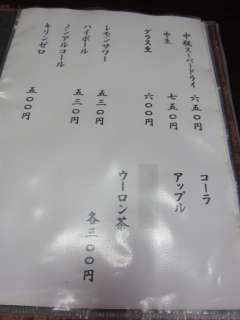 中瓶スーパードライ 六五〇円
中生 七五〇円
グラス生 六〇〇円
レモンサワー 五三〇円
ハイボール 五三〇円
ノンアルコール
キリンゼロ 五〇〇円
コーラ
アップル
ウーロン茶
各三〇〇円